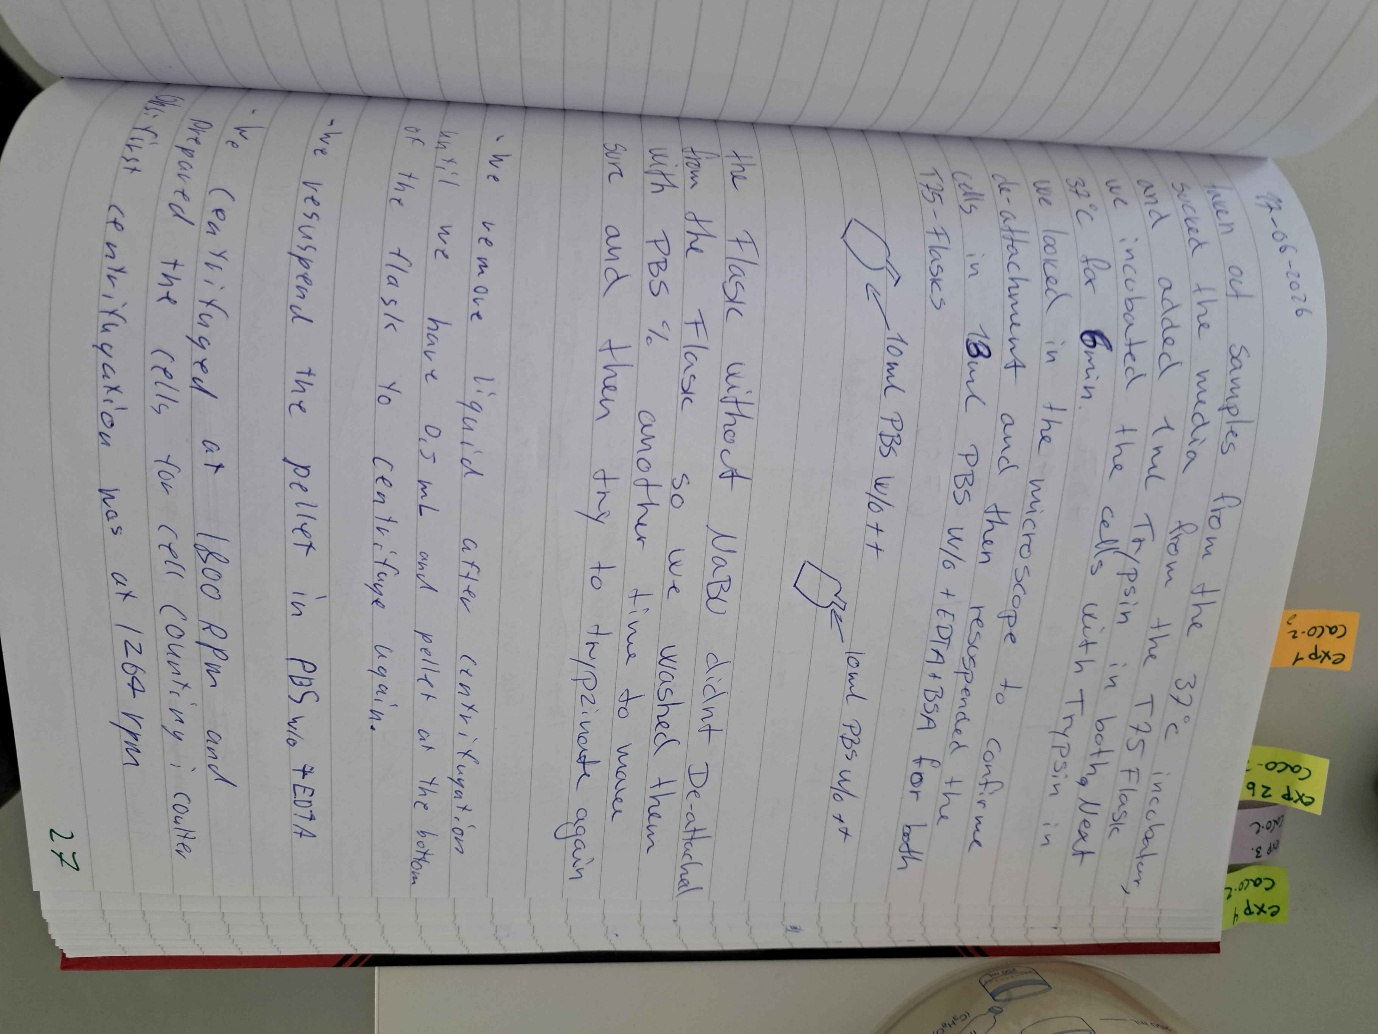 17-06-2026
taken out samples from the 37°C incubator,
sucked the media from the T75 Flask
and added 1mL Trypsin in both, Next
we incubated the cells with Trypsin in
37°C for 6min.
we looked in the microscope to confirme
de-attachment and then resuspended the
cells in 18mL PBS w/o + EDTA + BSA for both
T75-Flasks
10mL PBS w/o ++
10mL PBS w/o ++
the Flask without NaBU didnt De-attached
from the Flask so we washed them
with PBS % another time to make
sure and then try to trypzinate again
- We remove liquid after centrifugation
until we have 0,5 mL and pellet at the bottom
of the flask to centrifuge again.
- We resuspend the pellet in PBS w/o + EDTA
- We centrifuged at 1800 RPM and
Prepared the cells for cell counting i coulter
first centrifugation was at 1267 rpm
27
exp1
caco-2
exp 2b
caco-
exp 4
caco-2